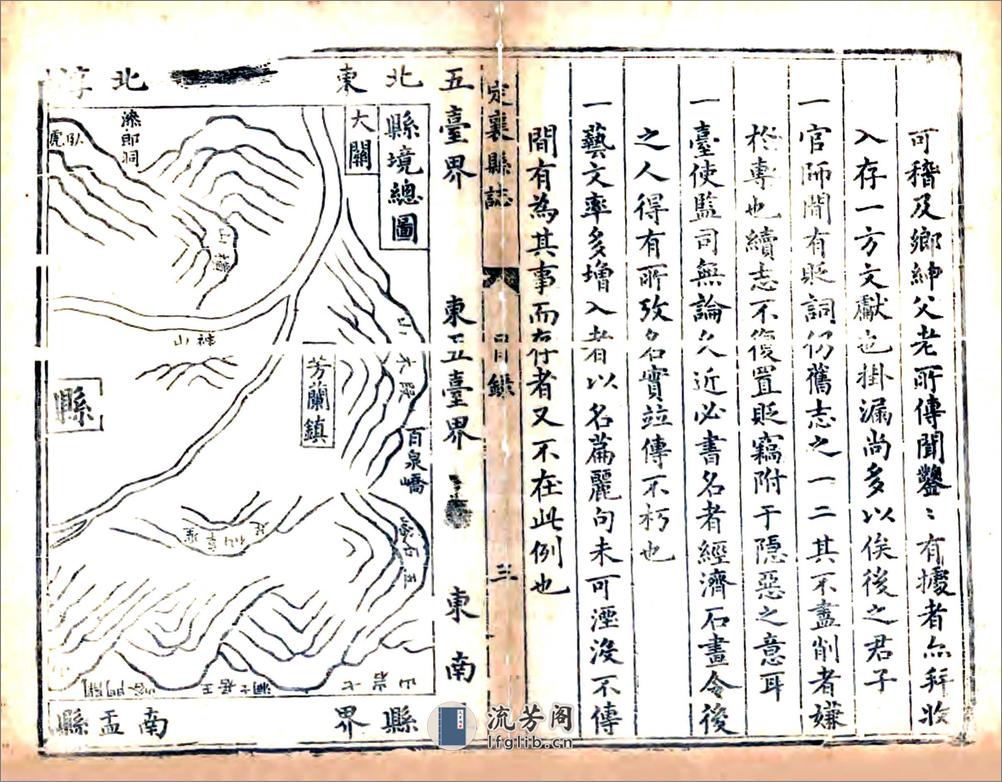 可稽及鄉紳父老所傳聞鑿〻有據者亦拜收
入存一方文獻也掛漏尚多以俟後之君子
一官師間有貶詞仍舊志之一二其不盡削者嫌
於專也續志不復置貶竊附于隱惡之意耳
一臺使監司無論久近必書名者經濟石畫令後
之人得有所攷名實竝傳不朽也
一藝文率多增入者以名篇麗句未可湮沒不傳
間有為其事而存者又不在此例也
定襄縣誌
目錄
三
五臺界
東五臺界
東
南
東北
北
縣境總圖
大關
滕郎洞
臥虎
神山
芳蘭鎮
縣
百泉嶠
七岩山
縣界
南盂縣
流芳阁
lfglib.cn